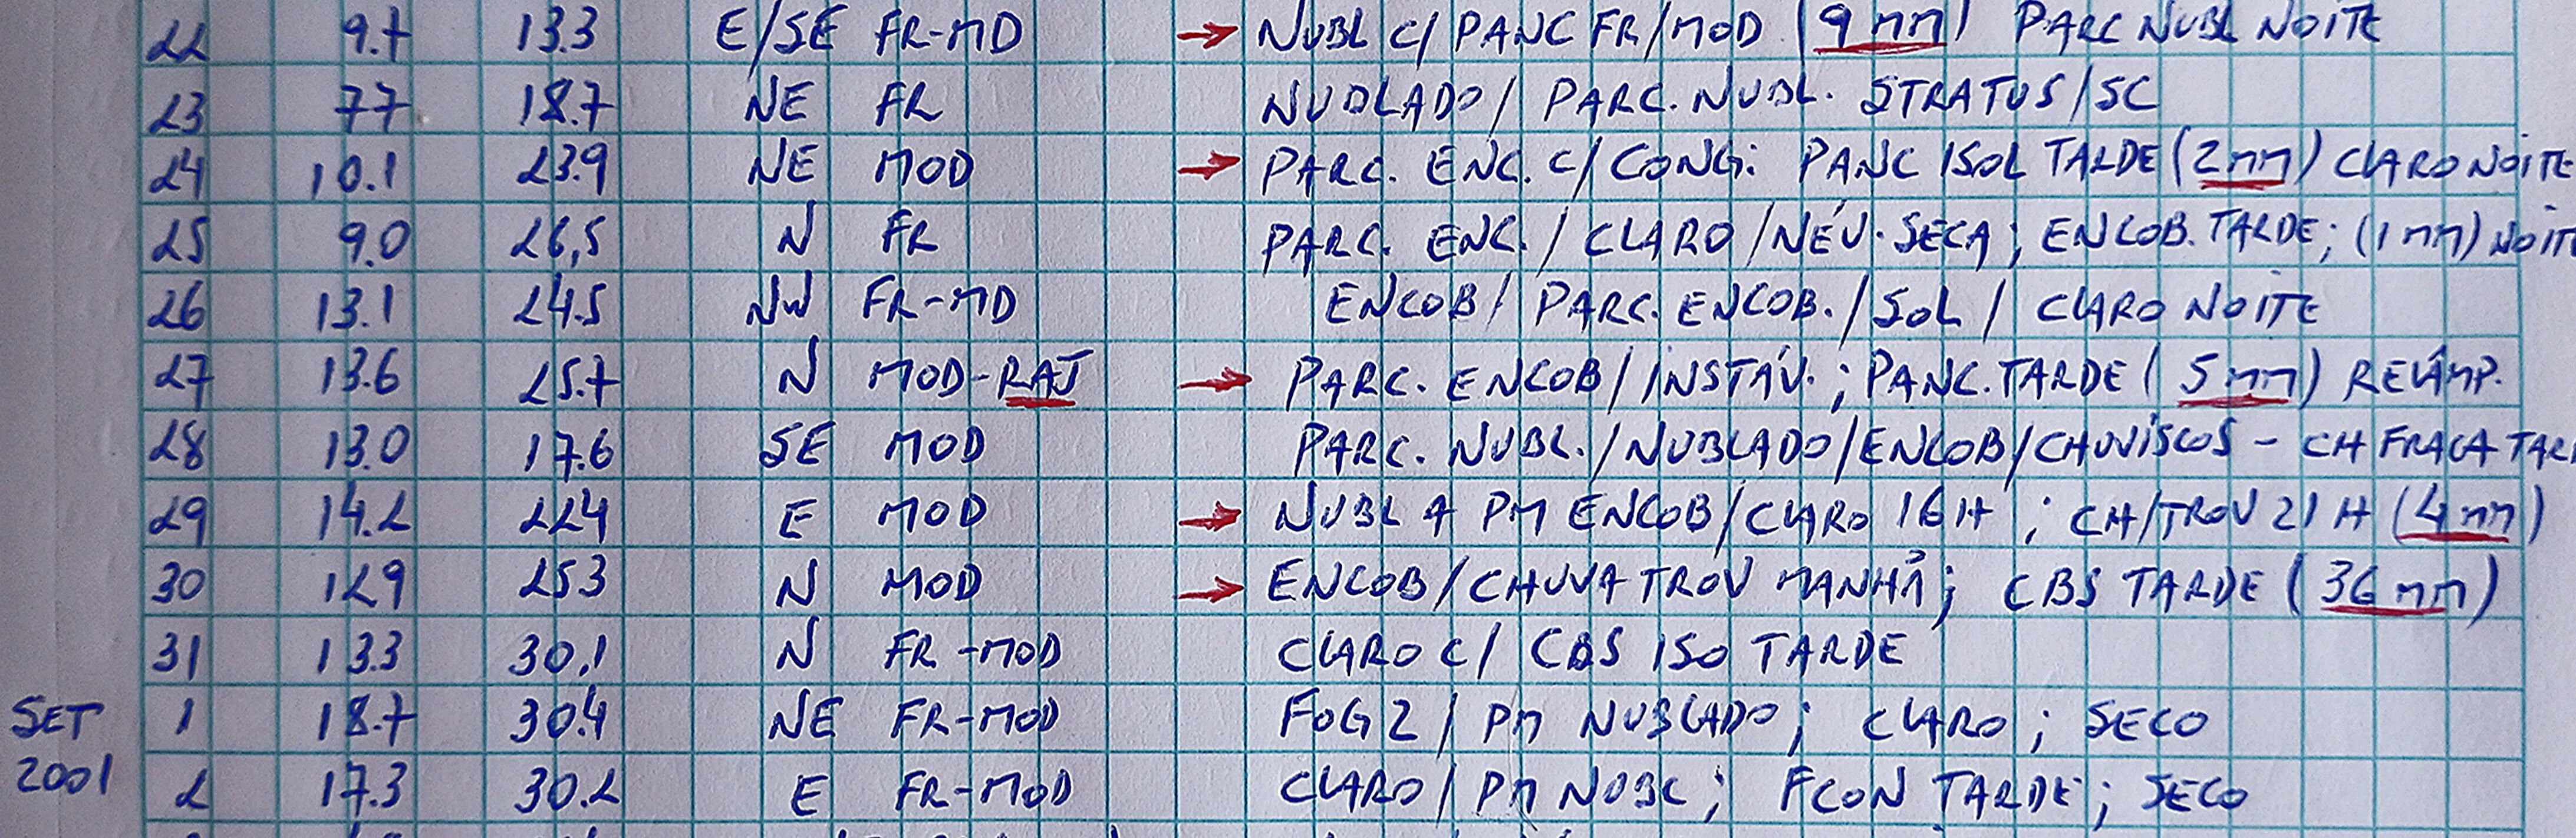 22 9.7 13.3 E/SE FR-MD → NUBL C/ PANC FR/MOD (9 mm) PARC NUBL NOITE
23 7.7 18.7 NE FR NUBLADO/ PARC. NUBL. STRATUS/SC
24 10.1 23.9 NE MOD → PARC. ENC. C/ CONG: PANC ISOL TARDE (2 mm) CLARO NOITE
25 9.0 26,5 N FR PARC. ENC. / CLARO / NÉV. SECA; ENCOB. TARDE; (1 mm) NOITE
26 13.1 24.5 NW FR-MD ENCOB/ PARC. ENCOB. / SOL / CLARO NOITE
27 13.6 25.7 N MOD-RAJ → PARC. ENCOB/ INSTÁV. ; PANC. TARDE ( 5 mm) RELÂMP.
28 13.0 17.6 SE MOD PARC. NUBL. / NUBLADO/ENCOB/CHUVISCOS - CH FRACA TAR
29 14.2 22.4 E MOD → NUBL A PM ENCOB/CLARO 16 H ; CH/TROV 21 H (4 mm)
30 12.9 25.3 N MOD → ENCOB/CHUVA TROV MANHÃ; CBS TARDE (36 mm)
31 13.3 30,1 N FR-MOD CLARO C/ CBS ISO TARDE
SET 1 18.7 30.4 NE FR-MOD FOG 2 / PM NUBLADO; CLARO ; SECO
2001 2 17.3 30.2 E FR-MOD CLARO / PM NUBL ; FCON TARDE ; SECO